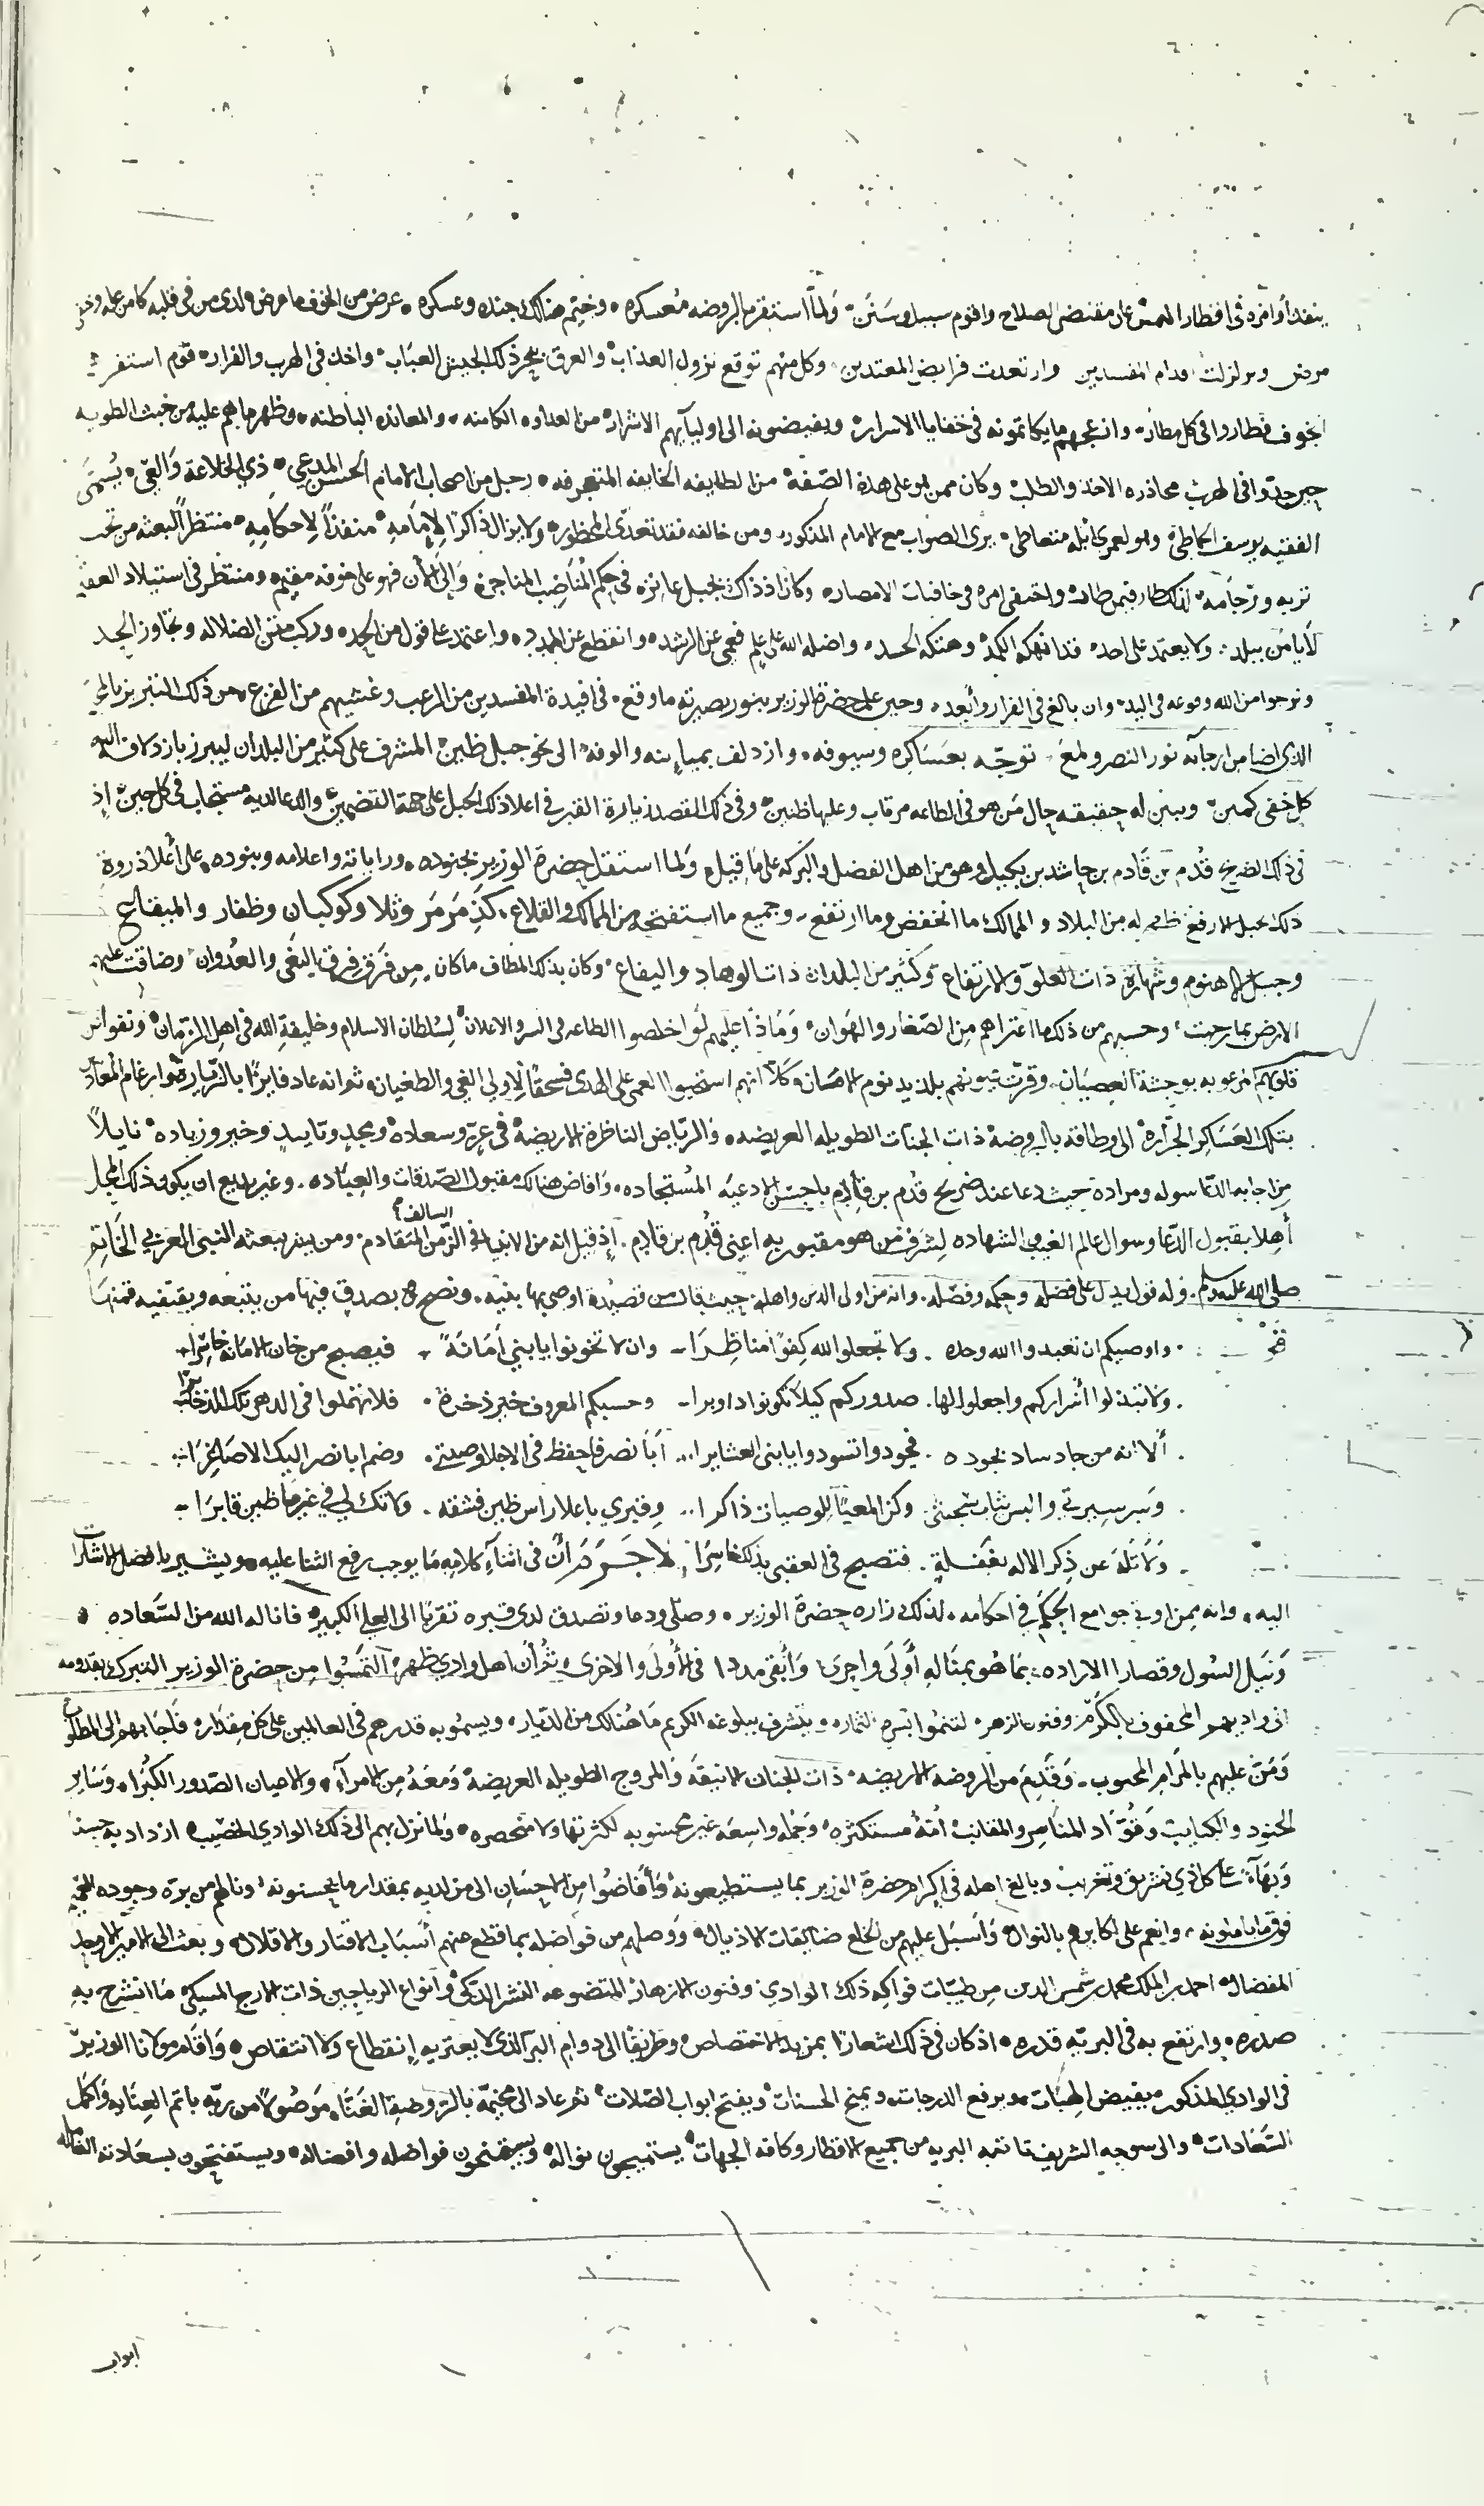 ينفذ أوامره في اقطار اليمن على مقتضى الصلاح واقوم سبيل وسنن ولما استقر بالروضه معسكره وخيم هنالك جنده وعسكره عرض من الخوف ما عرض لدى من في قلبه كامن عله وخفي
مرض وتزلزلت اقدام المفسدين وارتعدت فرايض المعتدين وكل منهم توقع نزول العذاب والغرق ببحر ذلك الجيش العباب واخذ في الهرب والفرار قوم استفزهم
الخوف فطاروا في كل مطار وانزعجهم ما يكاتمونه في خفايا الاسرار ويفيضونه الى اوليآيهم الاشرار من العداوه الكامنه والمعانده الباطنه وظهر ما هم عليه من خبث الطويه
حين جدوا في الهرب محاذره الاخذ والطلب وكان ممن هو على هذه الصفة من الطايفه الخايفه المنحرفه رجل من اصحاب الامام الحسن المدعي ذي الخلاعة والغي يسمى
الفقيه يوسف الحماطي وهو لعمري ابله متعاطي يرى الصواب مع الامام المذكور ومن خالفه فقد تعدى المحظور ولا يزال ذاكرًا لإمامه منفذًا لاحكامه منتظرًا لبعثه من تحت
تربه ورجامه لذلك طار فيمن طار واختفى امره في خافيات الامصار وكان اذ ذاك بجبل عانز في حكم المناصب المناجز وإلى الأن فهو على خوفه مقيم ومنتظر في استيلاد العقيم
لا يامن ببلد ولا يعتمد على احد قد انهكه الكمد وهتكه الحسد واضله الله على علم فعمى عن الرشد وانقطع عن المدد واعتمد على قول من الجحد وركب متن الضلاله وتجاوز الحد
ونرجوا من الله وقوعه في اليد وان بالغ في الفرار وأبعد وحين علم حضرة الوزير بنور بصيرته ما وقع في افيدة المفسدين من الرعب وغشيهم من الفزع من ذلك التبريز بالحق
الذي اضا من ارجائه نور النصر ولمع توجه بعساكره وسيوفه وازدلف بميآته والوفه الى نحو جبل ظين المشرف على كثير من البلدان ليبرز بازدلافه اليه
كل خفي كمين ويبين له حقيقه حال من هو في الطاعه مرتاب وعليها ظنين وفي ذلك القصد زيارة القبر في اعلا ذلك الجبل على جهة التضمين والدعا لديه مستجاب في كل حين إذ
في ذلك الضريح قدم بن قادم بن حاشد بن بكيل وهو من اهل الفضل والبركه على ما قيل ولما استقل حضرة الوزير بجنوده وراياته واعلامه وبنوده على أعلا ذروة
ذلك الجبل الارفع ظهر له من البلاد والممالك ما انخفض وما ارتفع وجميع ما استفتحه من الممالك والقلاع كذمرمر وثلا وكوكبان وظفار والميفاع
وجبل الاهنوم وشهارة ذات العلو والارتفاع وكثير من البلدان ذات الوهاد واليفاع وكان بذلك المطاف ماكان من فرق فرق البغي والعدوان وضاقت عليهم
الارض بما رحبت وحسبهم من ذلك ما اعتراهم من الصغار والهوان وماذا عليهم لو اخلصوا الطاعه في السر والاعلان لسلطان الاسلام وخليفة الله في اهل الزمان
قلوبهم مرعوبه بوحشة العصيان وقرت عيونهم بلذيذ نوم الامان وكلا انهم استحبوا العمى على الهدى فسحقًا لاولي الغي والطغيان ثم انه عاد فايزًا بالزياره وارغام المعاند
بتلك العساكر الجراره الى وطاقه بالروضة ذات الجنات الطويله العريضه والرياض الناظرة الاريضة في عز وسعادة ومجد وتاييد وخير وزياده نايلًا
من اجابه الدعا سوله ومراده حيث دعا عند ضريح قدم بن قادم باحسن الادعيه المستجاده وافاض هنالك مقبول الصدقات والعباده وغير بديع ان يكون ذلك المحل
أهلا بقبول الدعا وسوال عالم الغيب والشهاده لشرف من هو مقبور به اعني قدم بن قادم إذ قيل انه من الانبيا في الزمن السالف المتقادم ومن بشر ببعثه النبي العربي الخاتم
صلى الله عليه وسلم وله قول يدل على فضله وحكمه وفضله وانه من اولي الدين واهله حيث قال من قصيدة اوصى بها بنيه ونصح بصدق فيها من يتبعه ويقتفيه فمنها
واوصيكم ان تعبدوا الله وحده ولا تجعلوا لله كفوًا مناظرا وان لا تخونوا يا بني أمانةً فيصبح من خان الامانه خاسرا
ولا تبذلوا أسراركم واجعلوا لها صدوركم كيلا تكونوا دوابرا وحسبكم المعروف خير ذخيرة فلا تهملوا في الدهر تلك الذخايرا
ألا انه من جاد ساد بجوده فجودوا تسودوا يا بني العشايرا أبا نصر فاحفظ في الاجلا وصيتي وضم ابا نصر اليك الاصاغرا
وسر سيرتي والبس ثياب محبتي وكن لمعيًا للوصيات ذاكرا وقبري باعلا راس ظين فشقه ولا تك لي في غير ما ظين قابرا
ولا تله عن ذكر الاله بغفلة فتصبح في العقبى بذلك خاسرا لا جرم أن في اثنآء كلامه ما يوجب رفيع الثنا عليه ويشير بالفضل المشار
اليه وانه ممن اوتي جوامع الحكم في احكامه لذلك زاره حضرة الوزير وصلى ودعا وتصدق لدى قبره تقربا الى العلي الكبير فاناله الله من السعاده
ونيل السول وقصارا الاراده بما هو بمثاله أولى واحرى وأبقى مددا في الأولى والاخرى ثم أن اهل وادي ظهر التمسوا من حضرة الوزير التبرك بقدومه
الى واديهم المحفوف بالكروم وفنون الزهر لتنموا ثماره ويتشرف ببلوغه الكريم ما هنالك من الديار ويسمو به قدرهم في العالمين على كل مقدار فاجابهم الى المطلوب
ومن عليهم بالمرام المحبوب وقدم من الروضه الاريضه ذات الجنان الانيقة والمروج الطويله العريضة ومعه من الامرآء والاعيان الصدور الكبرا وساير
الجنود والكتايب وقواد المناسر والمقانب أمة مستكثره وجمله واسعة غير محسوبه لكثرتها ولا منحصره ولما نزل بهم الى ذلك الوادي الخصيب ازداد به حسنًا
وبهآءً على كل ذي تشريق وتغريب وبالغ اهله في اكرام حضرة الوزير بما يستطيعونه وأفاضوا من الاحسان الى من لديه بمقدار ما يحسنونه ونالهم من بره وجوده
فوق ما ياملونه وانعم على اكابرهم بالنوال واسبل عليهم من الخلع ضافيات الاذيال ووصلهم من فواضله بما قطع عنهم أسباب الاقتار والاقلال وبعث الى الامير الاوحد
المفضال احمد بن الملك محمد بن شمس الدين من طيبات فواكه ذلك الوادي وفنون الازهار المتضوعه النشر الذكي وأنواع الرياحين ذات الارج المسكي ما انشرح به
صدره وارتفع به في البريه قدره اذ كان في ذلك اشعارا بمزيد الاختصاص وطريقًا الى دوام البر الذي لا يعتريه إنقطاع ولا انتقاص وأقام مولانا الوزير
في الوادي المذكور يفيض الهبات ويرفع الدرجات ويمنح الحسنات ويفتح ابواب الصلات ثم عاد الى مخيمه بالروضة الغنا موصولًا من ربه باتم العنايه واكمل
السعادات والى سوحه الشريف تاتيه البريه من جميع الاقطار وكافه الجهات يستميحون نواله ويستمنحون فواضله وافضاله ويستفتحون بسعادته
ابواب